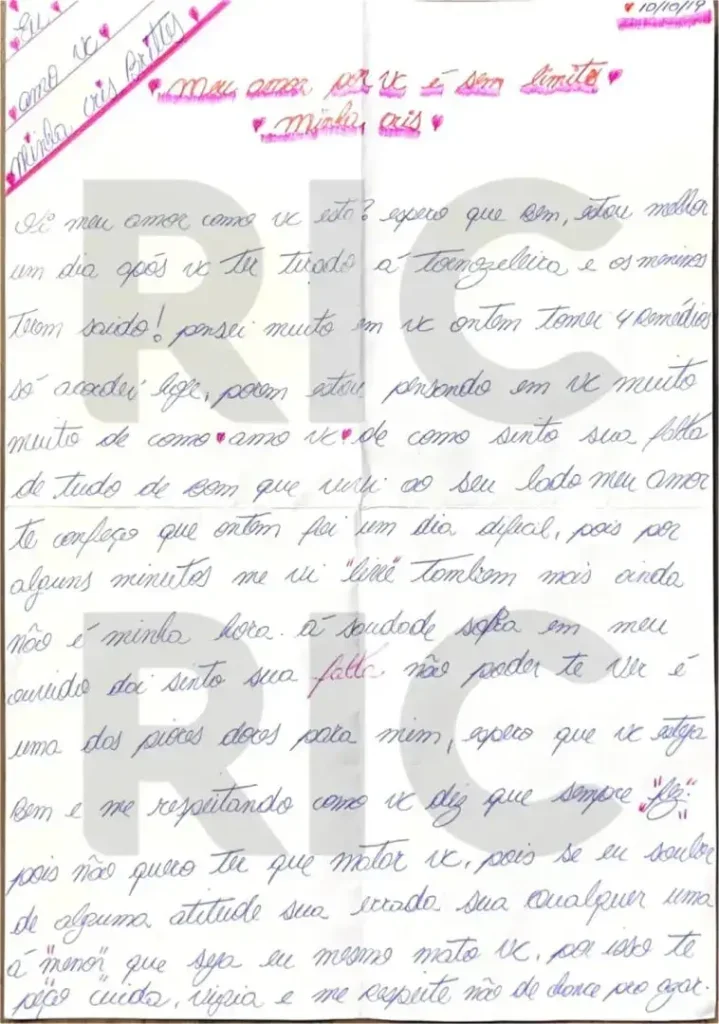 Eu
amo vc
minha cris Brittes
10/10/19
meu amor por vc é sem limite
minha cris
Oi meu amor como vc está? espero que bem, estou melhor
um dia após vc ter tirado a tornozeleira e os meninos
terem saido! pensei muito em vc ontem tomei 4 remédios
só acordei hoje, porem estou pensando em vc muito
muito de como amo vc de como sinto sua falta
de tudo de bom que vivi ao seu lado meu amor
te confeço que ontem foi um dia dificil, pois por
alguns minutos me vi "livre" tambem mais ainda
não é minha hora. a saudade sopra em meu
ouvido doi sinto sua falta não poder te ver é
uma das piores dores para mim, espero que vc esteja
Bem e me respeitando como vc diz que sempre "fez"
pois não quero ter que matar vc, pois se eu souber
de alguma atitude sua errada sua Qualquer uma
á "menor" que seja eu mesmo mato vc, por isso te
peço cuida, vigia e me respeite não de chance pro azar.
RIC
RIC